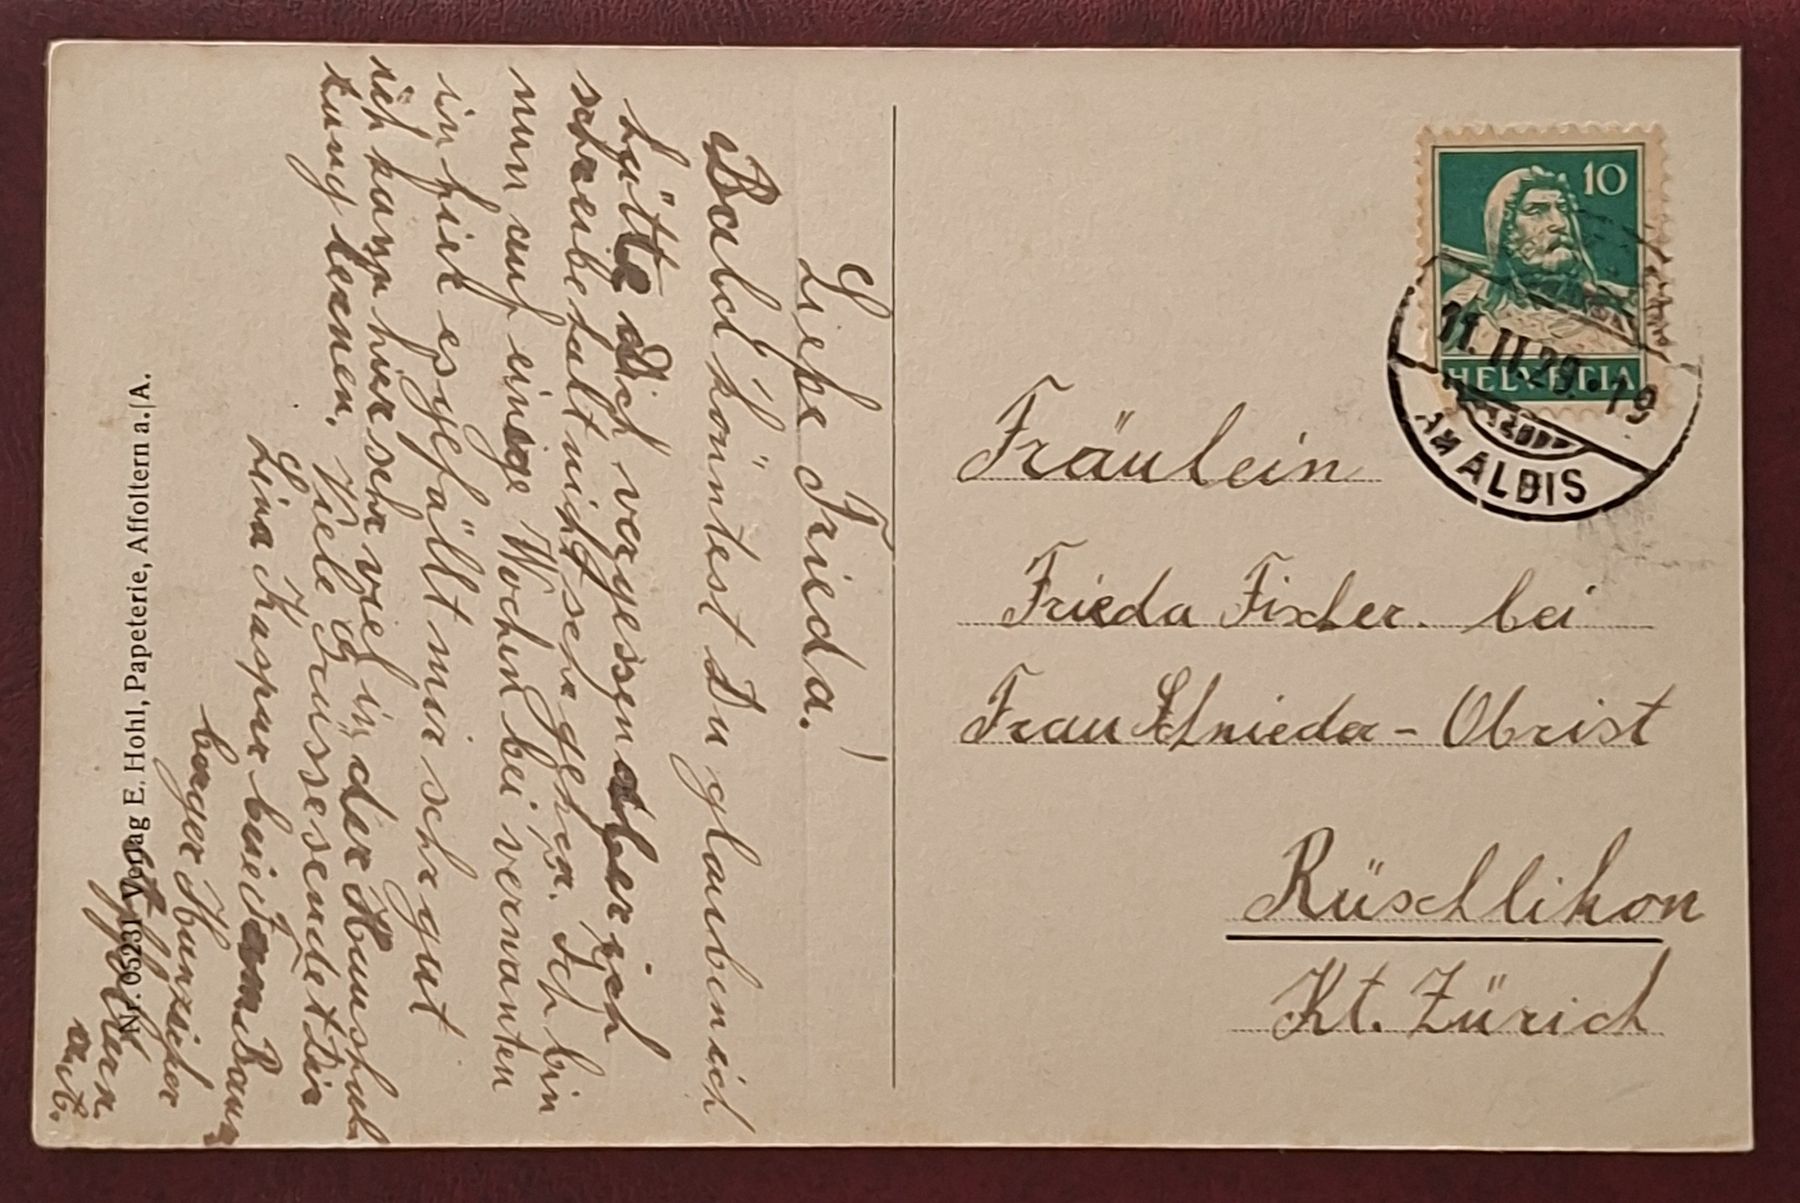 Liebe Frieda.
Bald könntest Du glauben ich
hätte Dich vergessen aber ich
schreibe halt nicht sehr gern. Ich bin
nun auf einige Wochen bei verwanten
in hier es gefällt mir sehr gut
ich kann hier sehr viel in der Haushal
tung lernen. Viele Grüsse sendet Dir
Lina Kaspar bei Fam. Baum
berger Hunziker
Affoltern
a/A.
Nr. 05231 Verlag E. Hohl, Papeterie, Affoltern a./A.
10
HELVETIA
11. II. 29. 19
AM ALBIS
Fräulein
Frieda Fischer. bei
Frau Schnieder - Obrist
Rüschlikon
Kt. Zürich